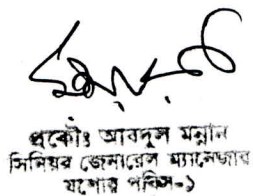 প্রকৌঃ আবদুল মন্নান
সিনিয়র জেনারেল ম্যানেজার
যশোর পবিস-১